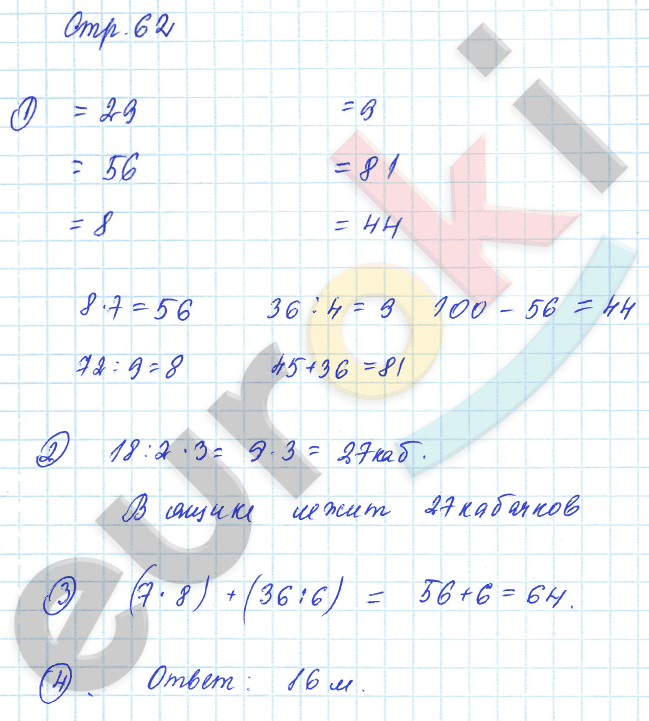 Стр. 62
① = 29 = 9
= 56 = 81
= 8 = 44
8·7=56 36:4=9 100-56=44
72:9=8 45+36=81
② 18:2·3= 9·3= 27каб.
В ящике лежит 27кабачков
③ (7·8)+(36:6) = 56+6=64.
④. Ответ: 16 м.
euroki